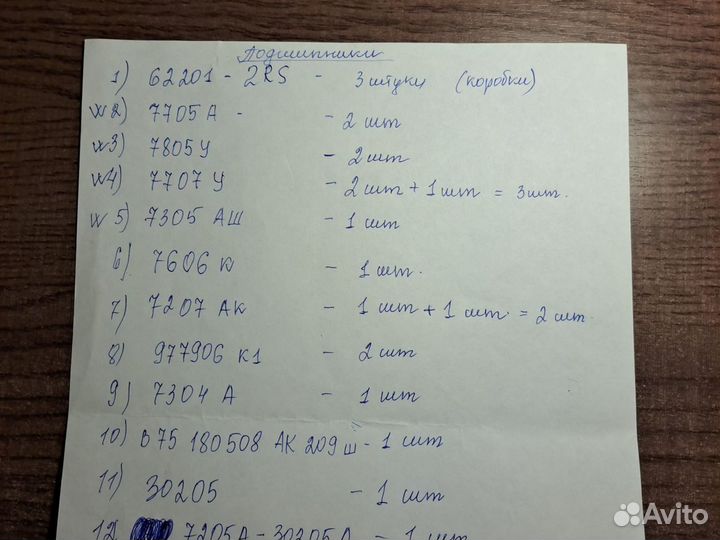 Подшипники
1) 62201 - 2RS - 3 штуки (коробки)
v 2) 7705 А - - 2 шт
v 3) 7805 У - 2 шт
v 4) 7707 У - 2 шт + 1 шт = 3 шт.
v 5) 7305 АШ - 1 шт
6) 7606 К - 1 шт.
7) 7207 АК - 1 шт + 1 шт. = 2 шт.
8) 977906 К1 - 2 шт
9) 7304 А - 1 шт
10) В75 180508 АК 209 Ш - 1 шт
11) 30205 - 1 шт
12 7205А - 30205 А - 1 шт
Avito